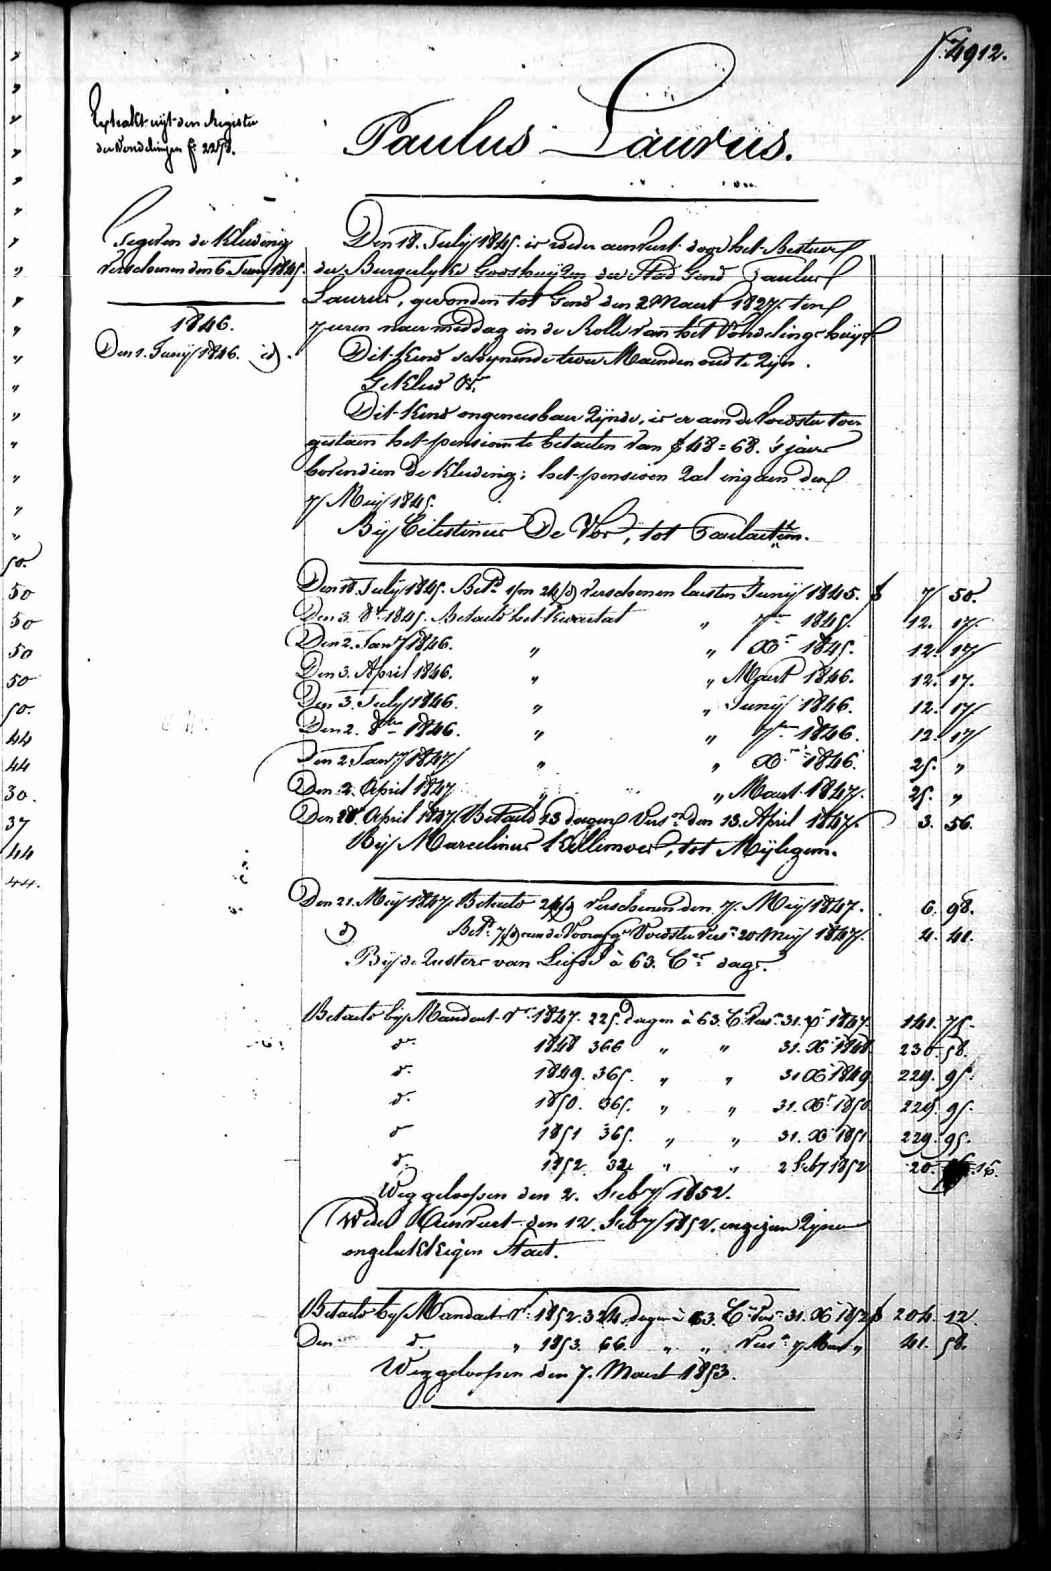 f. 4912.
Extrakt uijt den Register
der Vondelingen f:
Paulus Laurus.
Gegeven de Kleeding
verschenen den 6 Junij 1845.
1846.
Den 1. Junij 1846. id.
Den 18. Julij 1845. is weder aenveert door het Bestuer
der Burgerlyke Godshuijzen der Stad Gend Paulus
Laurus, gevonden tot Gend den 2 Maert 1827. ten
7 uren naer middag in de Rolle van het Vondelingshuijs
Dit Kind schynende twee Maenden oud te zijn.
Gekleed &c.
Dit Kind ongeneesbaer zijnde, is er aen de voedster toe-
gestaen het pensioen te betaelen van f 48=68. 's jaers
bovendien de Kleeding; het pensioen zal ingaen den
7 Meij 1845.
Bij Celestinus De Vos, tot Paulaethem.
Den 18. Julij 1845. Betd. 1/m 24/d verschenen laesten Junij 1845. f 7 50.
Den 3. 8r 1845. Betaeld het kwartael " 7r 1845. 12. 17
Den 2. Jany 1846. " " Xr 1845. 12. 17
Den 3. April 1846. " " Maert 1846. 12. 17.
Den 3. July 1846. " " Junij 1846. 12. 17
Den 2. 8bre 1846. " " 7r 1846. 12. 17
Den 2 Jany 1847 " " Xr 1846. 25. "
Den 2. April 1847 " " Maert 1847. 25. "
Den 28 April 1847 Betaeld 13 dagen Versn. den 13. April 1847. 3. 56.
Bij Marcelinus, tot Mijlegem.
Den 21. Meij 1847 Betaeld 24/d verschenen den 7. Meij 1847. 6. 98.
d Betd. aen de Voorsz. Voedster Vers. 20 Meij 1847. 4. 41.
Bij de Zusters van Liefde à 63. Cs. dags.
Betaeld by Mandaet Vr. 1847. 225. dagen à 63. C. Vers. 31. Xr 1847. 141. 75.
do. 1848 366 " " 31. Xr 1848. 230. 58.
do. 1849. 365. " " 31 Xr 1849 229. 95.
do. 1850. 365. " " 31. Xr 1850 229. 95.
do 1851 365. " " 31. Xr 1851 229. 95.
do 1852 32 " " 2 Feby 1852 20. 16.
Weggeloopen den 2. Feby 1852.
Weder Aenveert den 12. Feby 1852. aengezien zijnen
ongelukkigen Staet.
Betaeld by Mandaet Vr. 1852. 324. dagen à 63. C. Vers. 31. Xr 1852 f 204. 12.
Den do " 1853. 66. " " Vers. 7 Maert " 41. 58.
Weggeloopen den 7. Maert 1853.
50.
50
50
50
50
50.
44
44
30.
37
44
44.